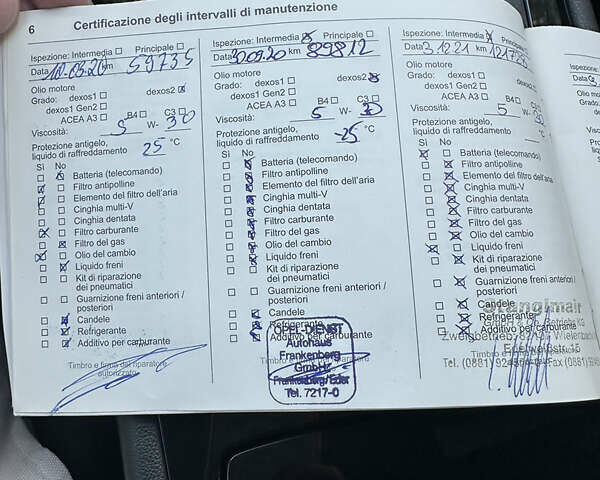 6
Certificazione degli intervalli di manutenzione
Ispezione: Intermedia Principale
Data 10.03.20 km 59735
Olio motore
Grado: dexos1 dexos2
dexos1 Gen2
ACEA A3 B4 C3
Viscosità: 5 W- 30
Protezione antigelo,
liquido di raffreddamento 25 °C
Sì No
Batteria (telecomando)
Filtro antipolline
Elemento del filtro dell'aria
Cinghia multi-V
Cinghia dentata
Filtro carburante
Filtro del gas
Olio del cambio
Liquido freni
Kit di riparazione
dei pneumatici
Guarnizione freni anteriori /
posteriori
Candele
Refrigerante
Additivo per carburante
Timbro e firma del riparatore
autorizzato
Ispezione: Intermedia Principale
Data km 89812
Olio motore
Grado: dexos1 dexos2
dexos1 Gen2
ACEA A3 B4 C3
Viscosità: 5 W- 30
Protezione antigelo,
liquido di raffreddamento -25 °C
Sì No
Batteria (telecomando)
Filtro antipolline
Elemento del filtro dell'aria
Cinghia multi-V
Cinghia dentata
Filtro carburante
Filtro del gas
Olio del cambio
Liquido freni
Kit di riparazione
dei pneumatici
Guarnizione freni anteriori /
posteriori
Candele
Refrigerante
Additivo per carburante
OPEL-DIENST
Autohaus
Frankenberg
GmbH
Frankenberg/Eder
Tel. 7217-0
Ispezione: Intermedia Principale
Data 3.12.21 km
Olio motore
Grado: dexos1 dexos2
dexos1 Gen2
ACEA A3 B4 C3
Viscosità: 5 W-
Protezione antigelo,
liquido di raffreddamento °C
Sì No
Batteria (telecomando)
Filtro antipolline
Elemento del filtro dell'aria
Cinghia multi-V
Cinghia dentata
Filtro carburante
Filtro del gas
Olio del cambio
Liquido freni
Kit di riparazione
dei pneumatici
Guarnizione freni anteriori /
posteriori
Candele
Stanglmair
Refrigerante
Additivo per carburante